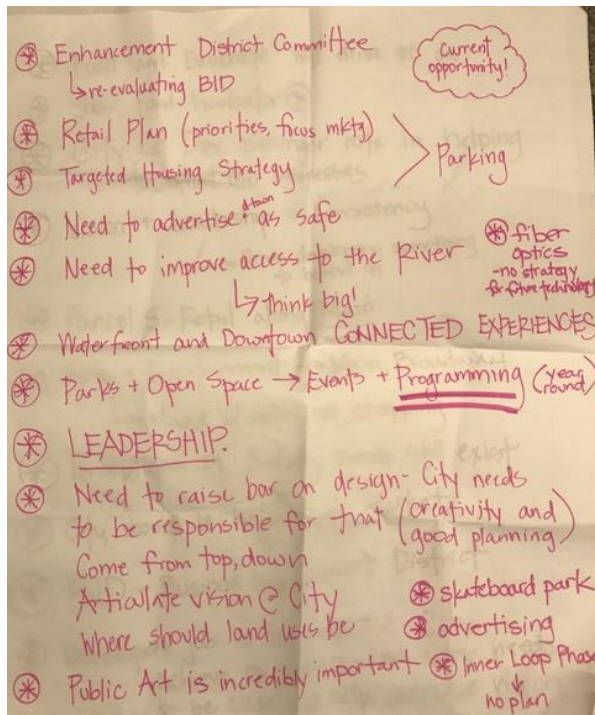 Enhancement District Committee
↳ re-evaluating BID
Current
opportunity!
Retail Plan (priorities, focus mktg)
Targeted Housing Strategy
Parking
Need to advertise d-town as safe
Need to improve access to the River
↳ think big!
fiber
optics
- no strategy
for future technology
Waterfront and Downtown CONNECTED EXPERIENCES
Parks + Open Space → Events + Programming (year round)
LEADERSHIP.
Need to raise bar on design - City needs
to be responsible for that (creativity and
good planning)
Come from top, down
Articulate vision @ City
Where should land uses be
skateboard park
advertising
Public Art is incredibly important
Inner Loop Phase
↓
no plan